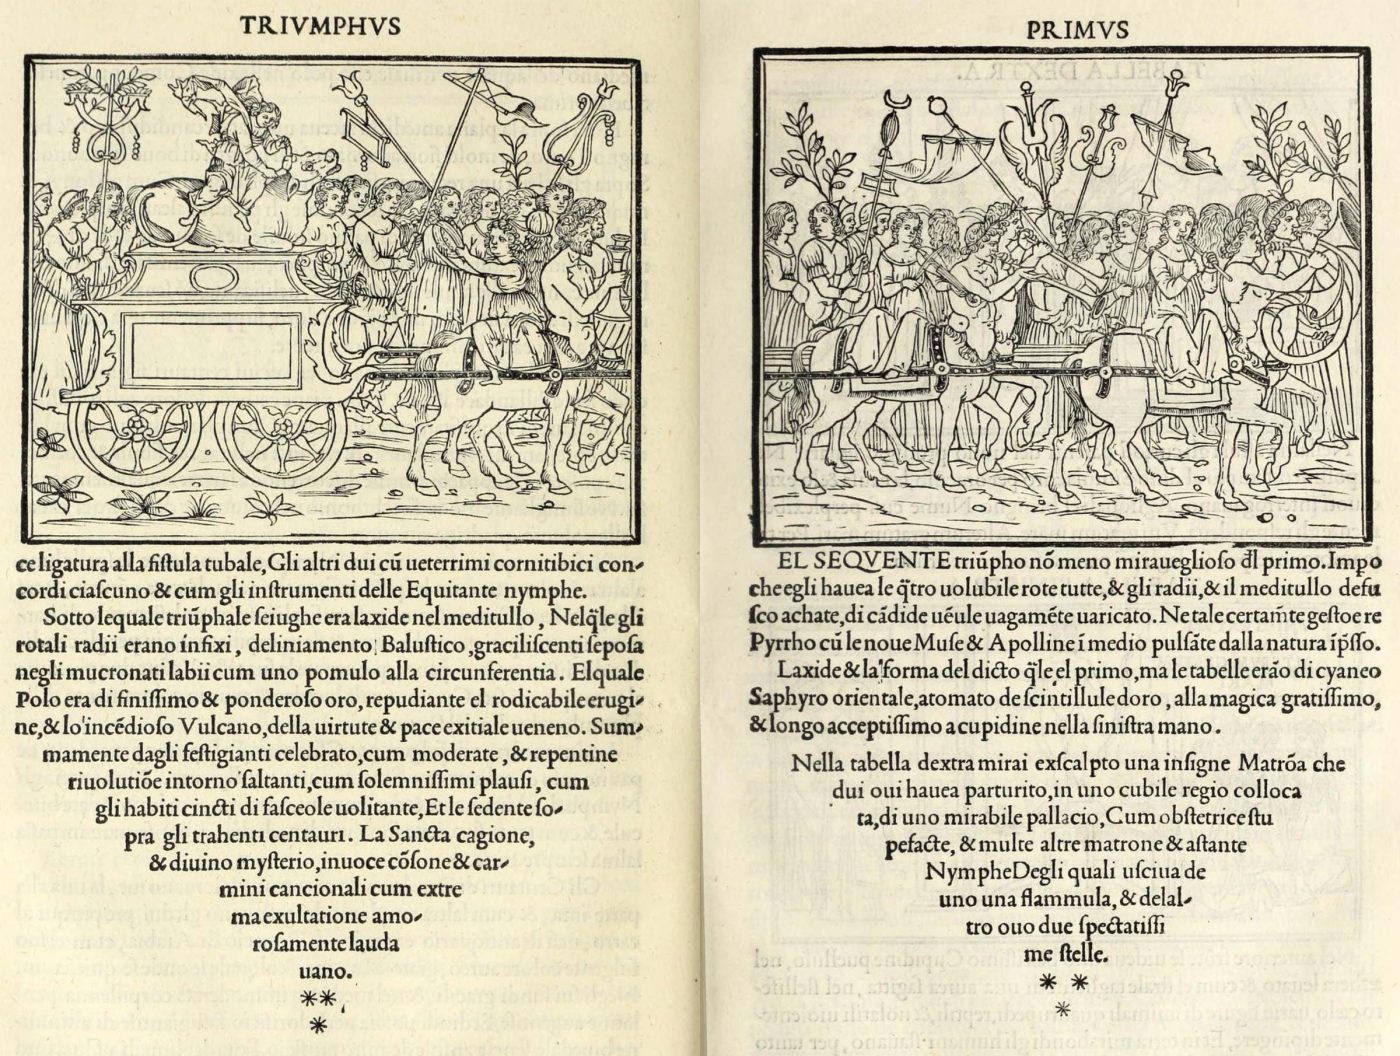 TRIVMPHVS
ce ligatura alla fistula tubale, Gli altri dui cū ueterrimi cornitibici con-
cordi ciascuno & cum gli instrumenti delle Equitante nymphe.
Sotto lequale triūphale seiughe era laxide nel meditullo, Nelq̄le gli
rotali radii erano infixi, deliniamento Balustico, graciliscenti seposa
negli mucronati labii cum uno pomulo alla circunferentia. Elquale
Polo era di finissimo & ponderoso oro, repudiante el rodicabile erugi-
ne, & lo'incēdioso Vulcano, della uirtute & pace exitiale ueneno. Sum-
mamente dagli festigianti celebrato, cum moderate, & repentine
riuolutiōe intorno saltanti, cum solemnissimi plausi, cum
gli habiti cincti di fasceole uolitante, Et le sedente so-
pra gli trahenti centauri. La Sancta cagione,
& diuino mysterio, inuoce cōsone & car-
mini cancionali cum extre
ma exultatione amo-
rosamente lauda
uano.
**
*
PRIMVS
EL SEQVENTE triūpho nō meno miraueglioso dl primo. Impo
che egli hauea le q̄tro uolubile rote tutte, & gli radii, & il meditullo defu
sco achate, di cādide uēule uagamēte uaricato. Ne tale certam̄te gestoe re
Pyrrho cū le noue Muse & Apolline ī medio pulsāte dalla natura īpsso.
Laxide & la forma del dicto q̄le el primo, ma le tabelle erāo di cyaneo
Saphyro orientale, atomato de scintillule doro, alla magica gratissimo,
& longo acceptissimo a cupidine nella sinistra mano.
Nella tabella dextra mirai exscalpto una insigne Matrōa che
dui oui hauea parturito, in uno cubile regio colloca
ta, di uno mirabile pallacio, Cum obstetrice stu
pefacte, & multe altre matrone & astante
Nymphe Degli quali usciua de
uno una flammula, & delal-
tro ouo due spectatissi
me stelle.
* *
*